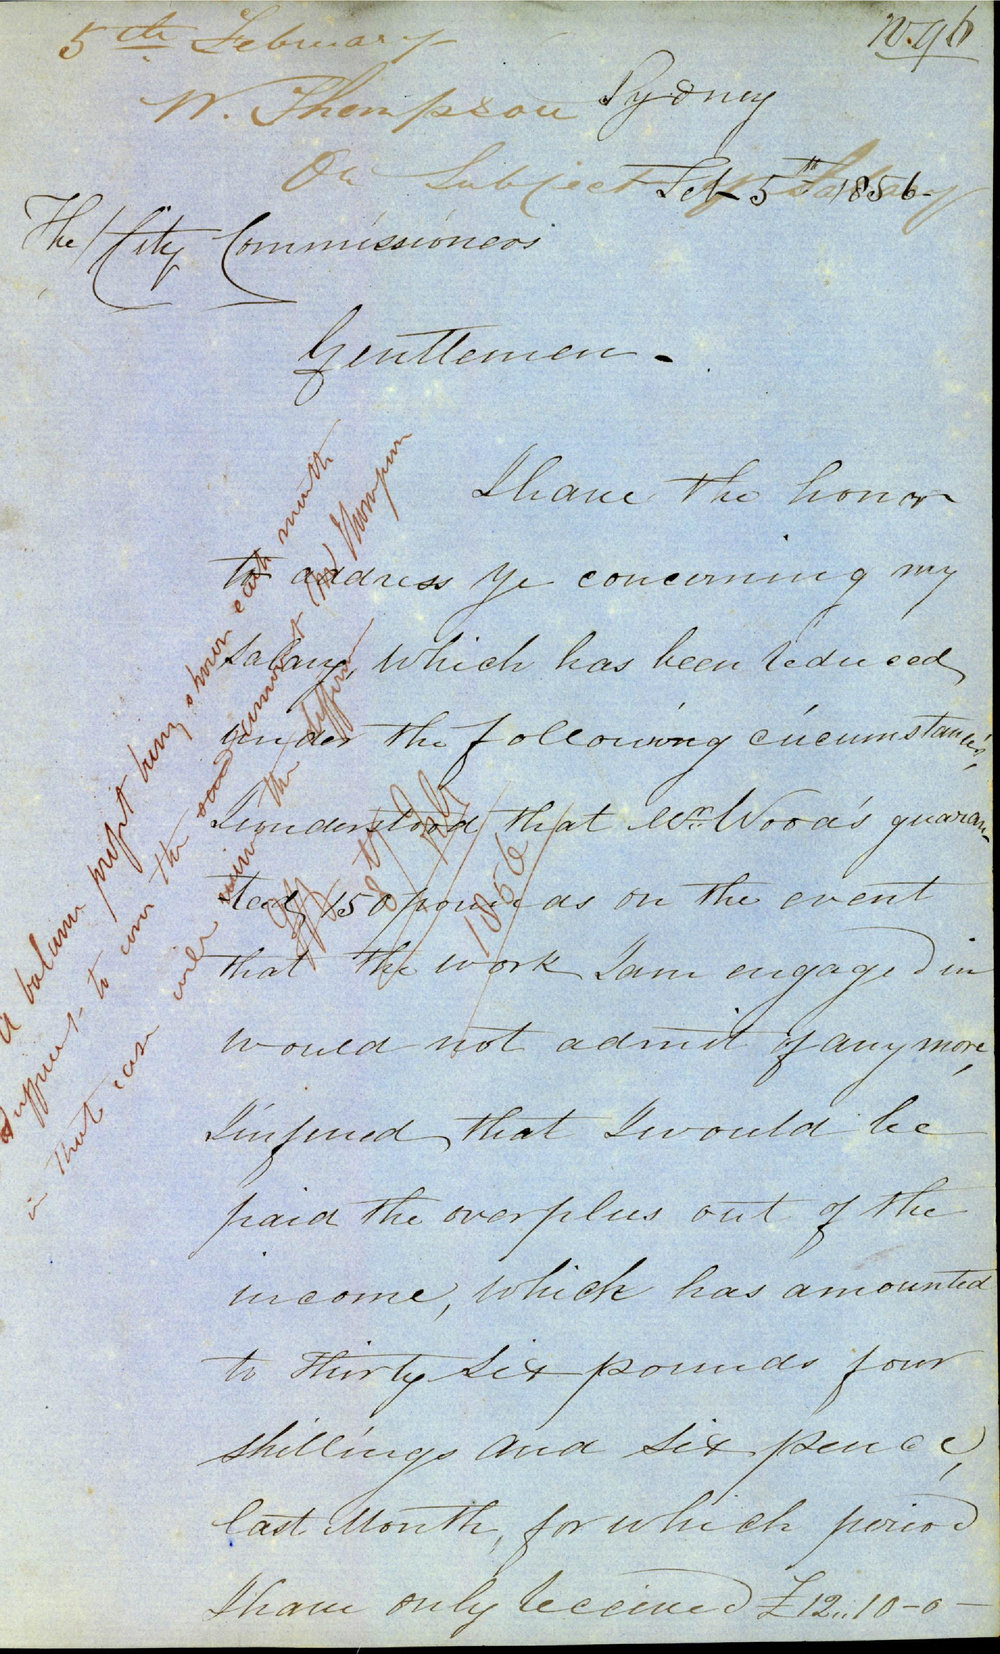 5th February
W. Thompson
On Subject of Salary
No. 96
Sydney
Feb 5th 1856-
The City Commissioners
Gentlemen -
I have the honor
to address ye concerning my
salary, which has been reduced
under the following circumstances,
I understood that Mr. Woods guaran-
teed 150 pounds on the event
that the work I am engaged in
would not admit of any more,
I infered that I would be
paid the overplus out of the
income, which has amounted
to thirty six pounds four
shillings and six pence,
last Month, for which period
I have only received £12..10-0-
A balance profit being shown each month
sufficient to cover the said amount Mr Thompson
in that case will receive the difference
8th Feby
1856